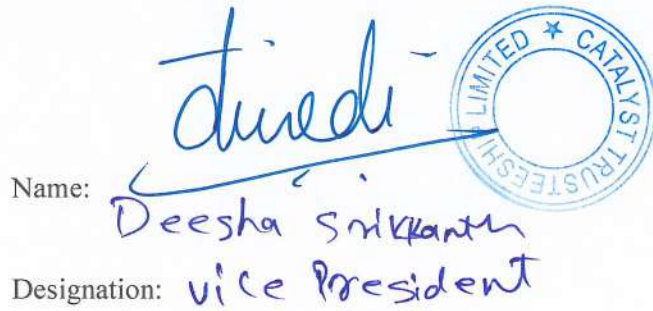 CATALYST TRUSTEESHIP LIMITED
Name: Deesha Srikkanth
Designation: Vice President